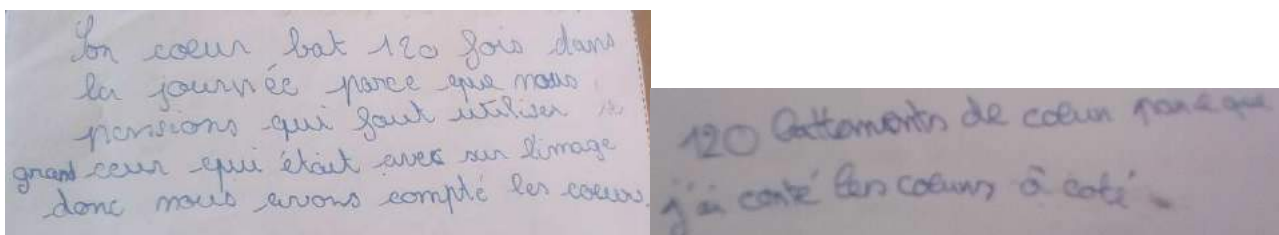 Son coeur bat 120 fois dans
la journée parce que nous
pensions qui faut utiliser
grand ceur qui était avec sur l'image
donc nous avons compté les coeurs.
120 battements de coeur parceque
j'ai conté les coeurs à coté.